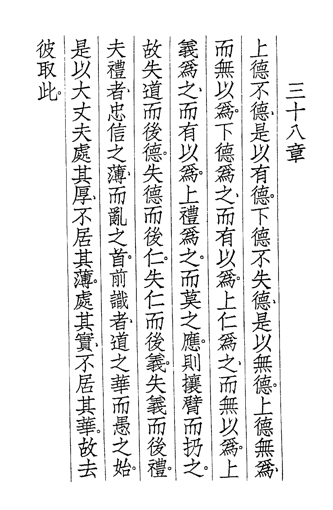 三十八章
上德不德、是以有德。下德不失德、是以無德。上德無為、
而無以為。下德為之、而有以為。上仁為之、而無以為。上
義為之、而有以為。上禮為之。而莫之應。則攘臂而扔之。
故失道而後德。失德而後仁。失仁而後義。失義而後禮。
夫禮者、忠信之薄、而亂之首。前識者、道之華而愚之始。
是以大丈夫處其厚、不居其薄。處其實、不居其華。故去
彼取此。